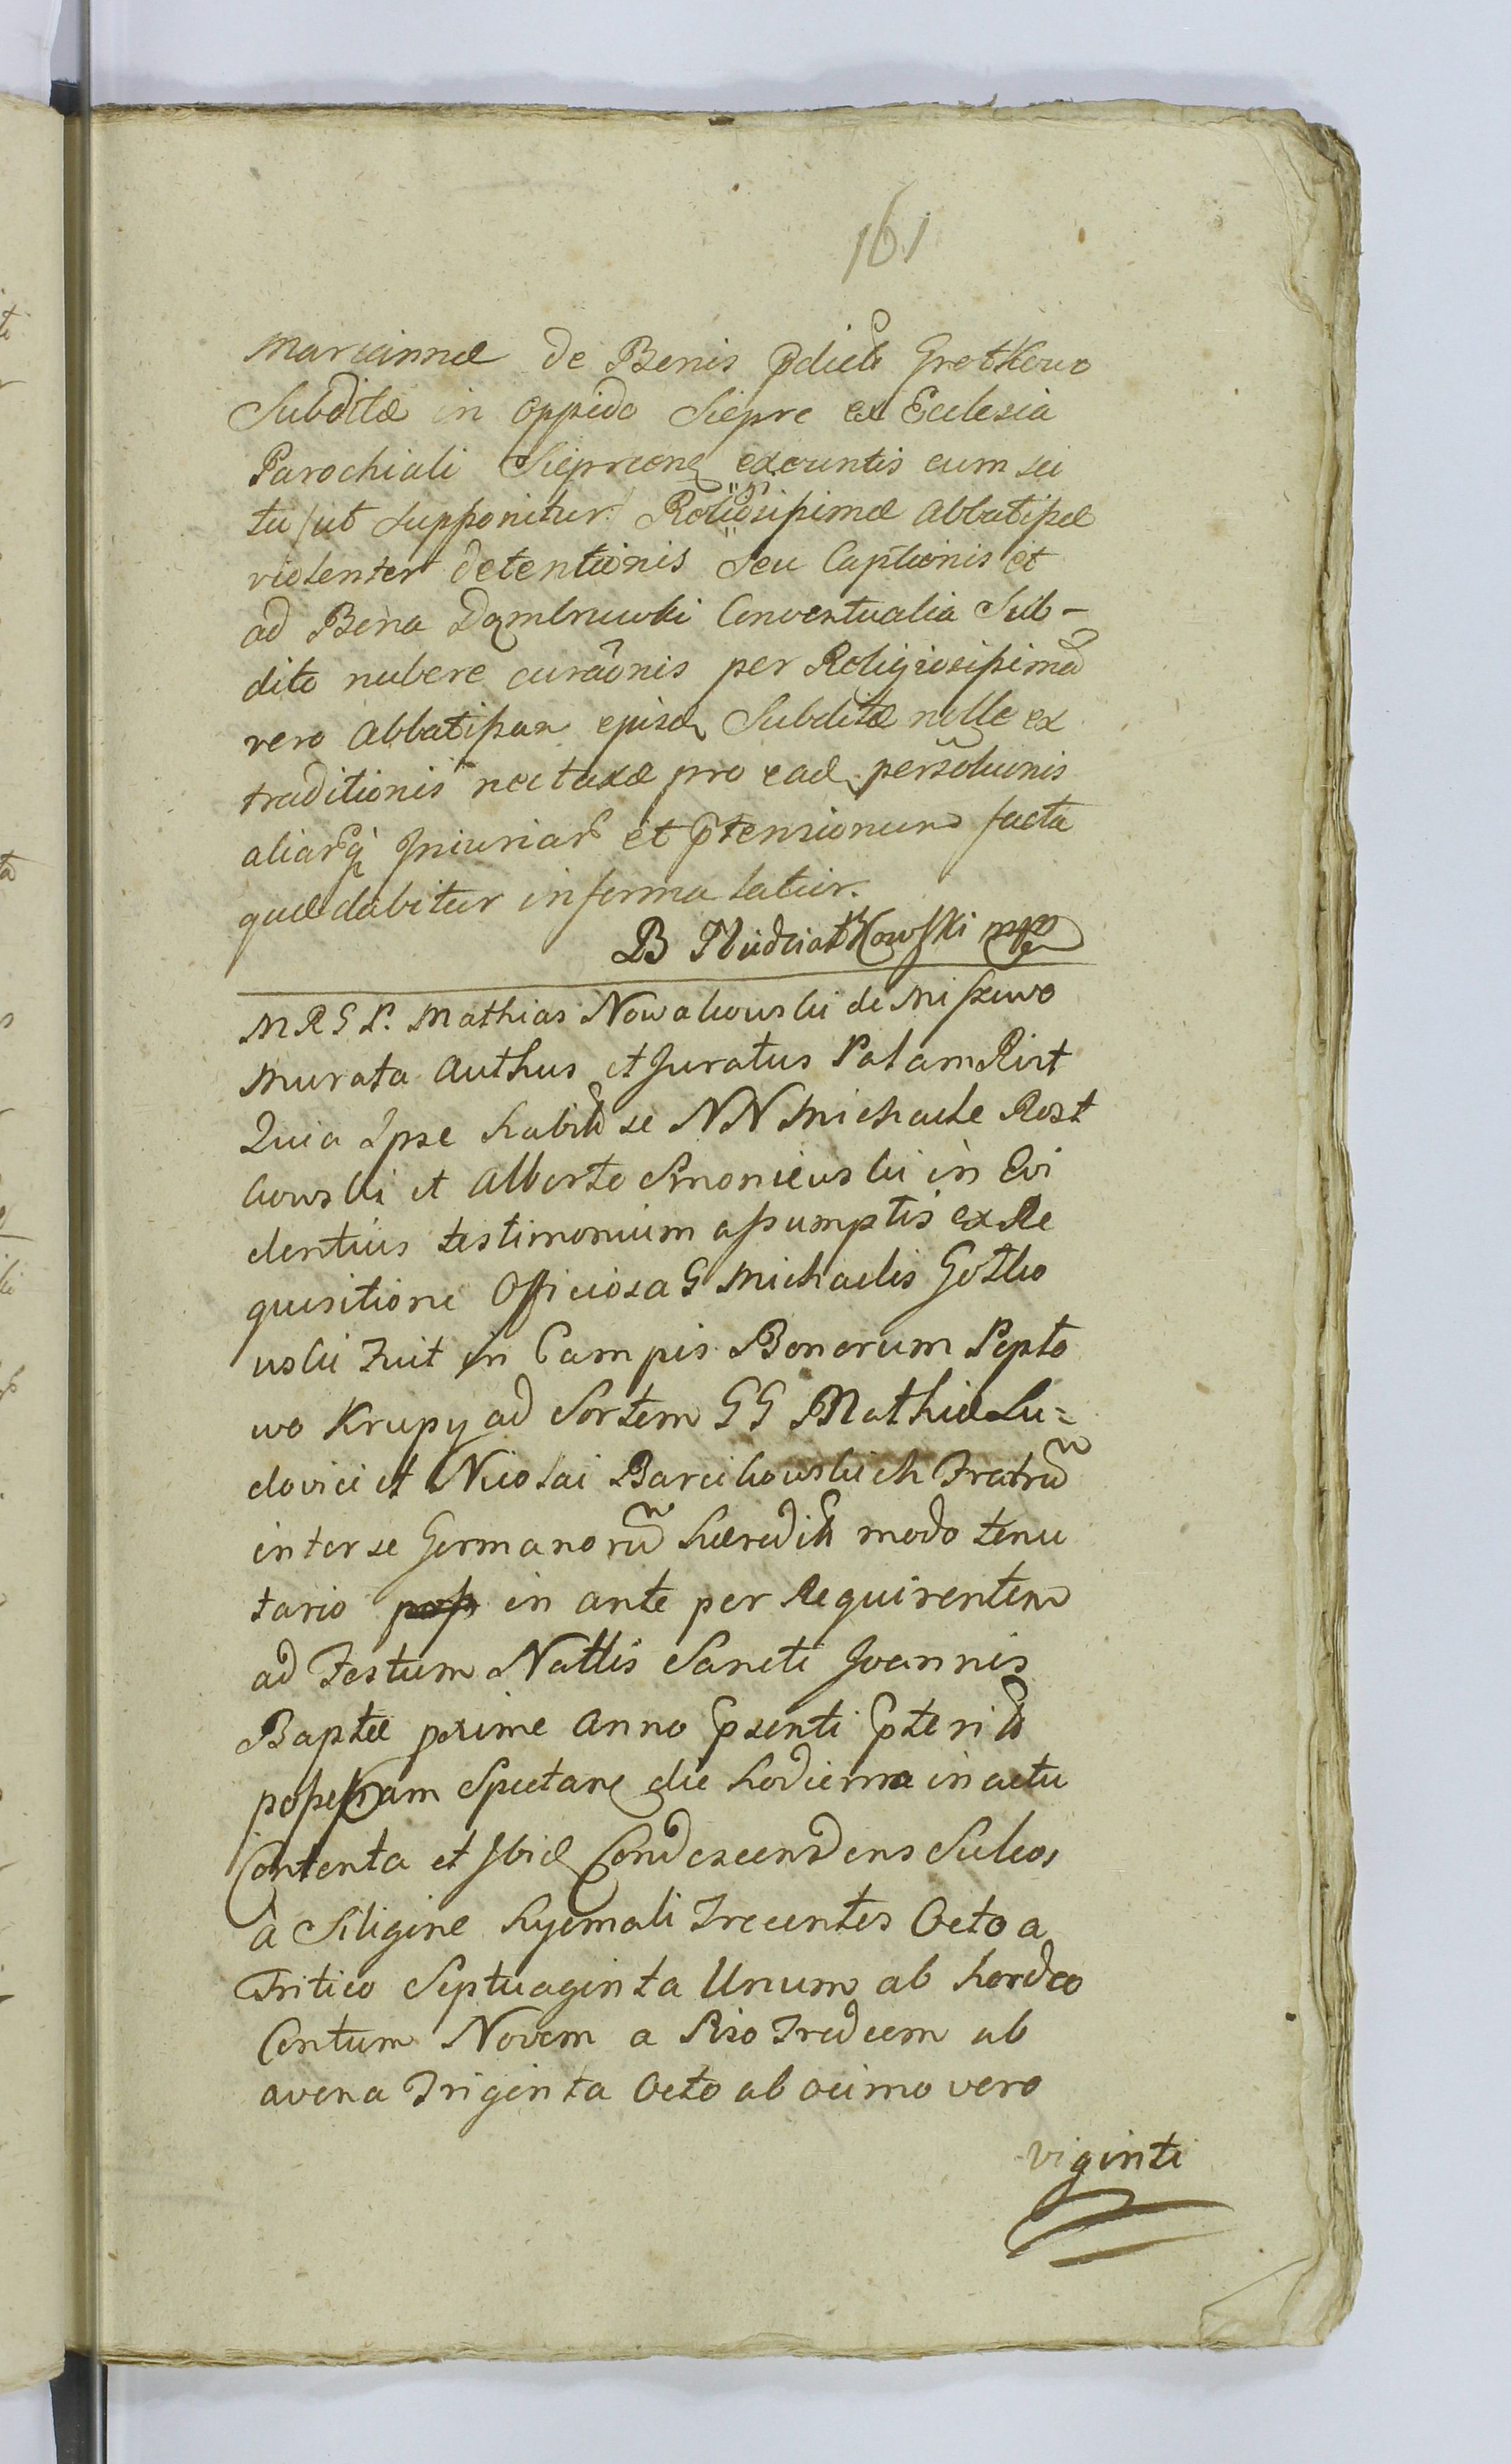 161
Mariannæ de Benis pdict Grotkowo
Subditæ in oppido Sierpc ex Ecclesia
Parochiali Sieprcen exeuntis cum sci
tu /ut supponitur Religiosissimæ Abbatissæ
violenter detentionis seu Captionis et
ad Bona Dąmbruwki Conventualia Sub-
dito nubere curaonis per Religiosissima
vero Abbatissan episd Subditæ nolle ex
traditionis nec taxæ pro ead persolvionis
aliarq Iniuriar et ptensionum facta
quæ dabitur in forma latior.
B mpp
M R G P. Mathias Nowakowski de Miszewo
Murata Authus et Juratus Palam Rixt
Quia Ipse habit se NN Michaele Rost
kowski et Alberto Simoniewski in Evi
dentius testimonium assumptis ex Re
quisitione Officiosa G Michaelis Gotko
wski Fuit in Campis Bonorum Pepło
wo Krupy ad Sortem GG Mathiæ Lu=
dovici et Nicolai Barcikowskich Fratrũ
inter se Germanorũ hæredit modo tenu
tario poss in ante per Requirentem
ad Festum Natlis Sancti Joannis
Baptæ proxime Anno psenti pterit
possessam Spectan die hodierna in actu
Contenta et Ibid Condescendens Sulcos
à Siligine hyemali Trecentos Octo a
Tritico Septuaginta Unum ab hordeo
Centum Novem a Piso Tredecem ab
avena Triginta Octo ab ocimo vero
viginti